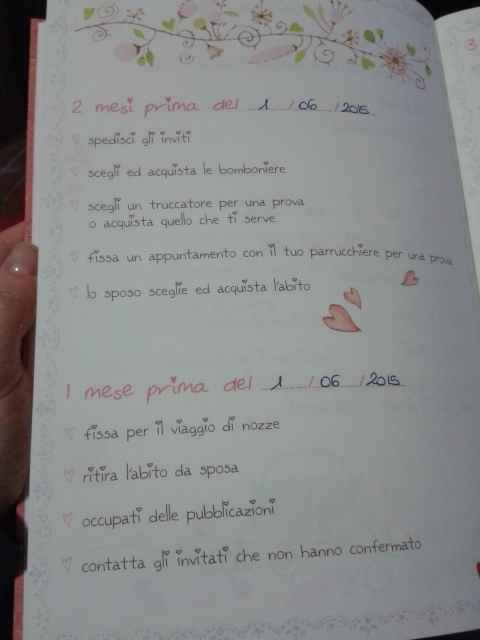 2 mesi prima del 1 / 06 / 2015
spedisci gli inviti
scegli ed acquista le bomboniere
scegli un truccatore per una prova
o acquista quello che ti serve
fissa un appuntamento con il tuo parrucchiere per una prova
lo sposo sceglie ed acquista l'abito
1 mese prima del 1 / 06 / 2015
fissa per il viaggio di nozze
ritira l'abito da sposa
occupati delle pubblicazioni
contatta gli invitati che non hanno confermato
3